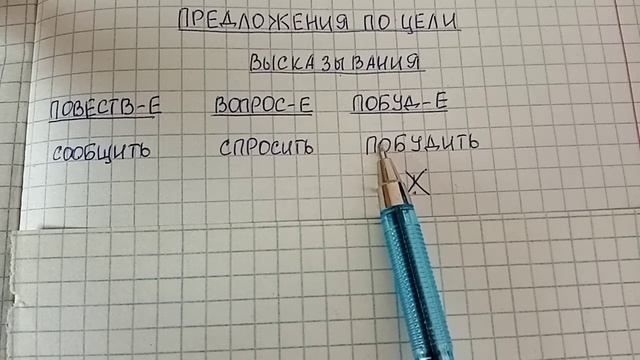 ПРЕДЛОЖЕНИЯ ПО ЦЕЛИ
ВЫСКАЗЫВАНИЯ
ПОВЕСТВ-Е ВОПРОС-Е ПОБУД-Е
СООБЩИТЬ СПРОСИТЬ ПОБУДИТЬ
Х